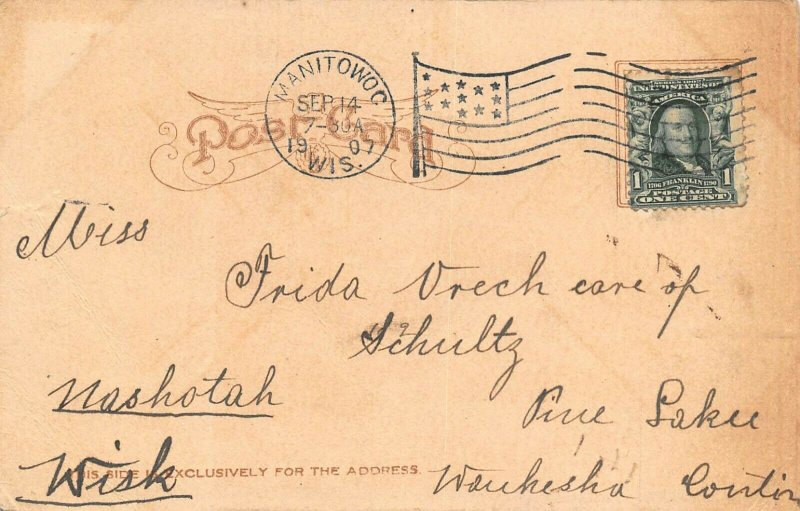 MANITOWOC
SEP 14
7-30A
1907
WIS.
Post Card
SERIES 1902
UNITED STATES OF
AMERICA
1706 FRANKLIN 1790
1 POSTAGE 1
ONE CENT
Miss
Frida Vrech care of
Schultz
Nashotah
Pine Lakee
Wisk
THIS SIDE IS EXCLUSIVELY FOR THE ADDRESS
Waukesha Contin